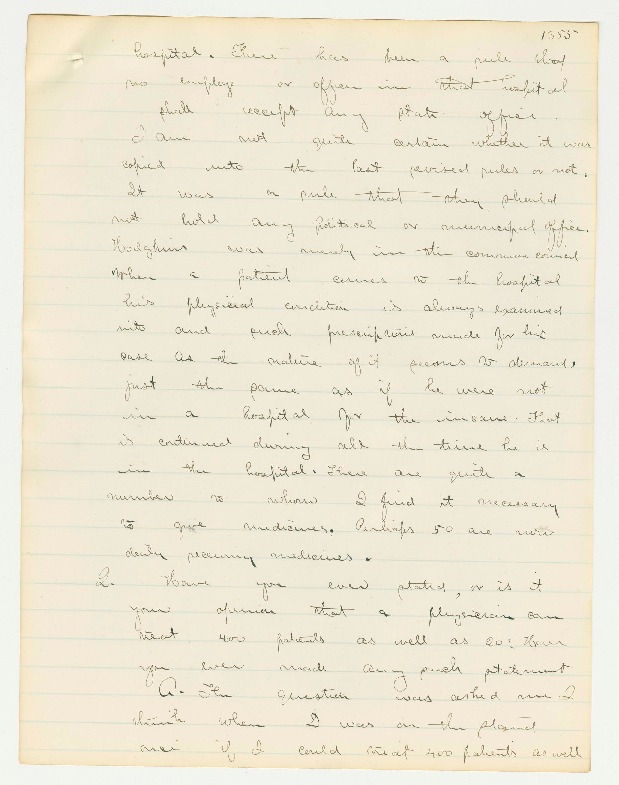 1355
hospital. There has been a rule that
no employe or officer in that hospital
shall accept any state office.
I am not quite certain whether it was
copied into the last revised rules or not.
It was a rule that they should
not hold any political or municipal office.
Hodgkins was merely in the common council
When a patient comes to the hospital
his physical condition is always examined
into and such prescriptions made for his
case as the nature of it seems to demand,
just the same as if he were not
in a hospital for the insane. That
is continued during all the time he is
in the hospital. There are quite a
number to whom I find it necessary
to give medicines. Perhaps 50 are now
daily receiving medicines.
Q. Have you ever stated, or is it
your opinion that a physician can
treat 400 patients as well as 20? Have
you ever made any such statement
A. The question was asked me I
think when I was on the stand
once if I could treat 400 patients as well